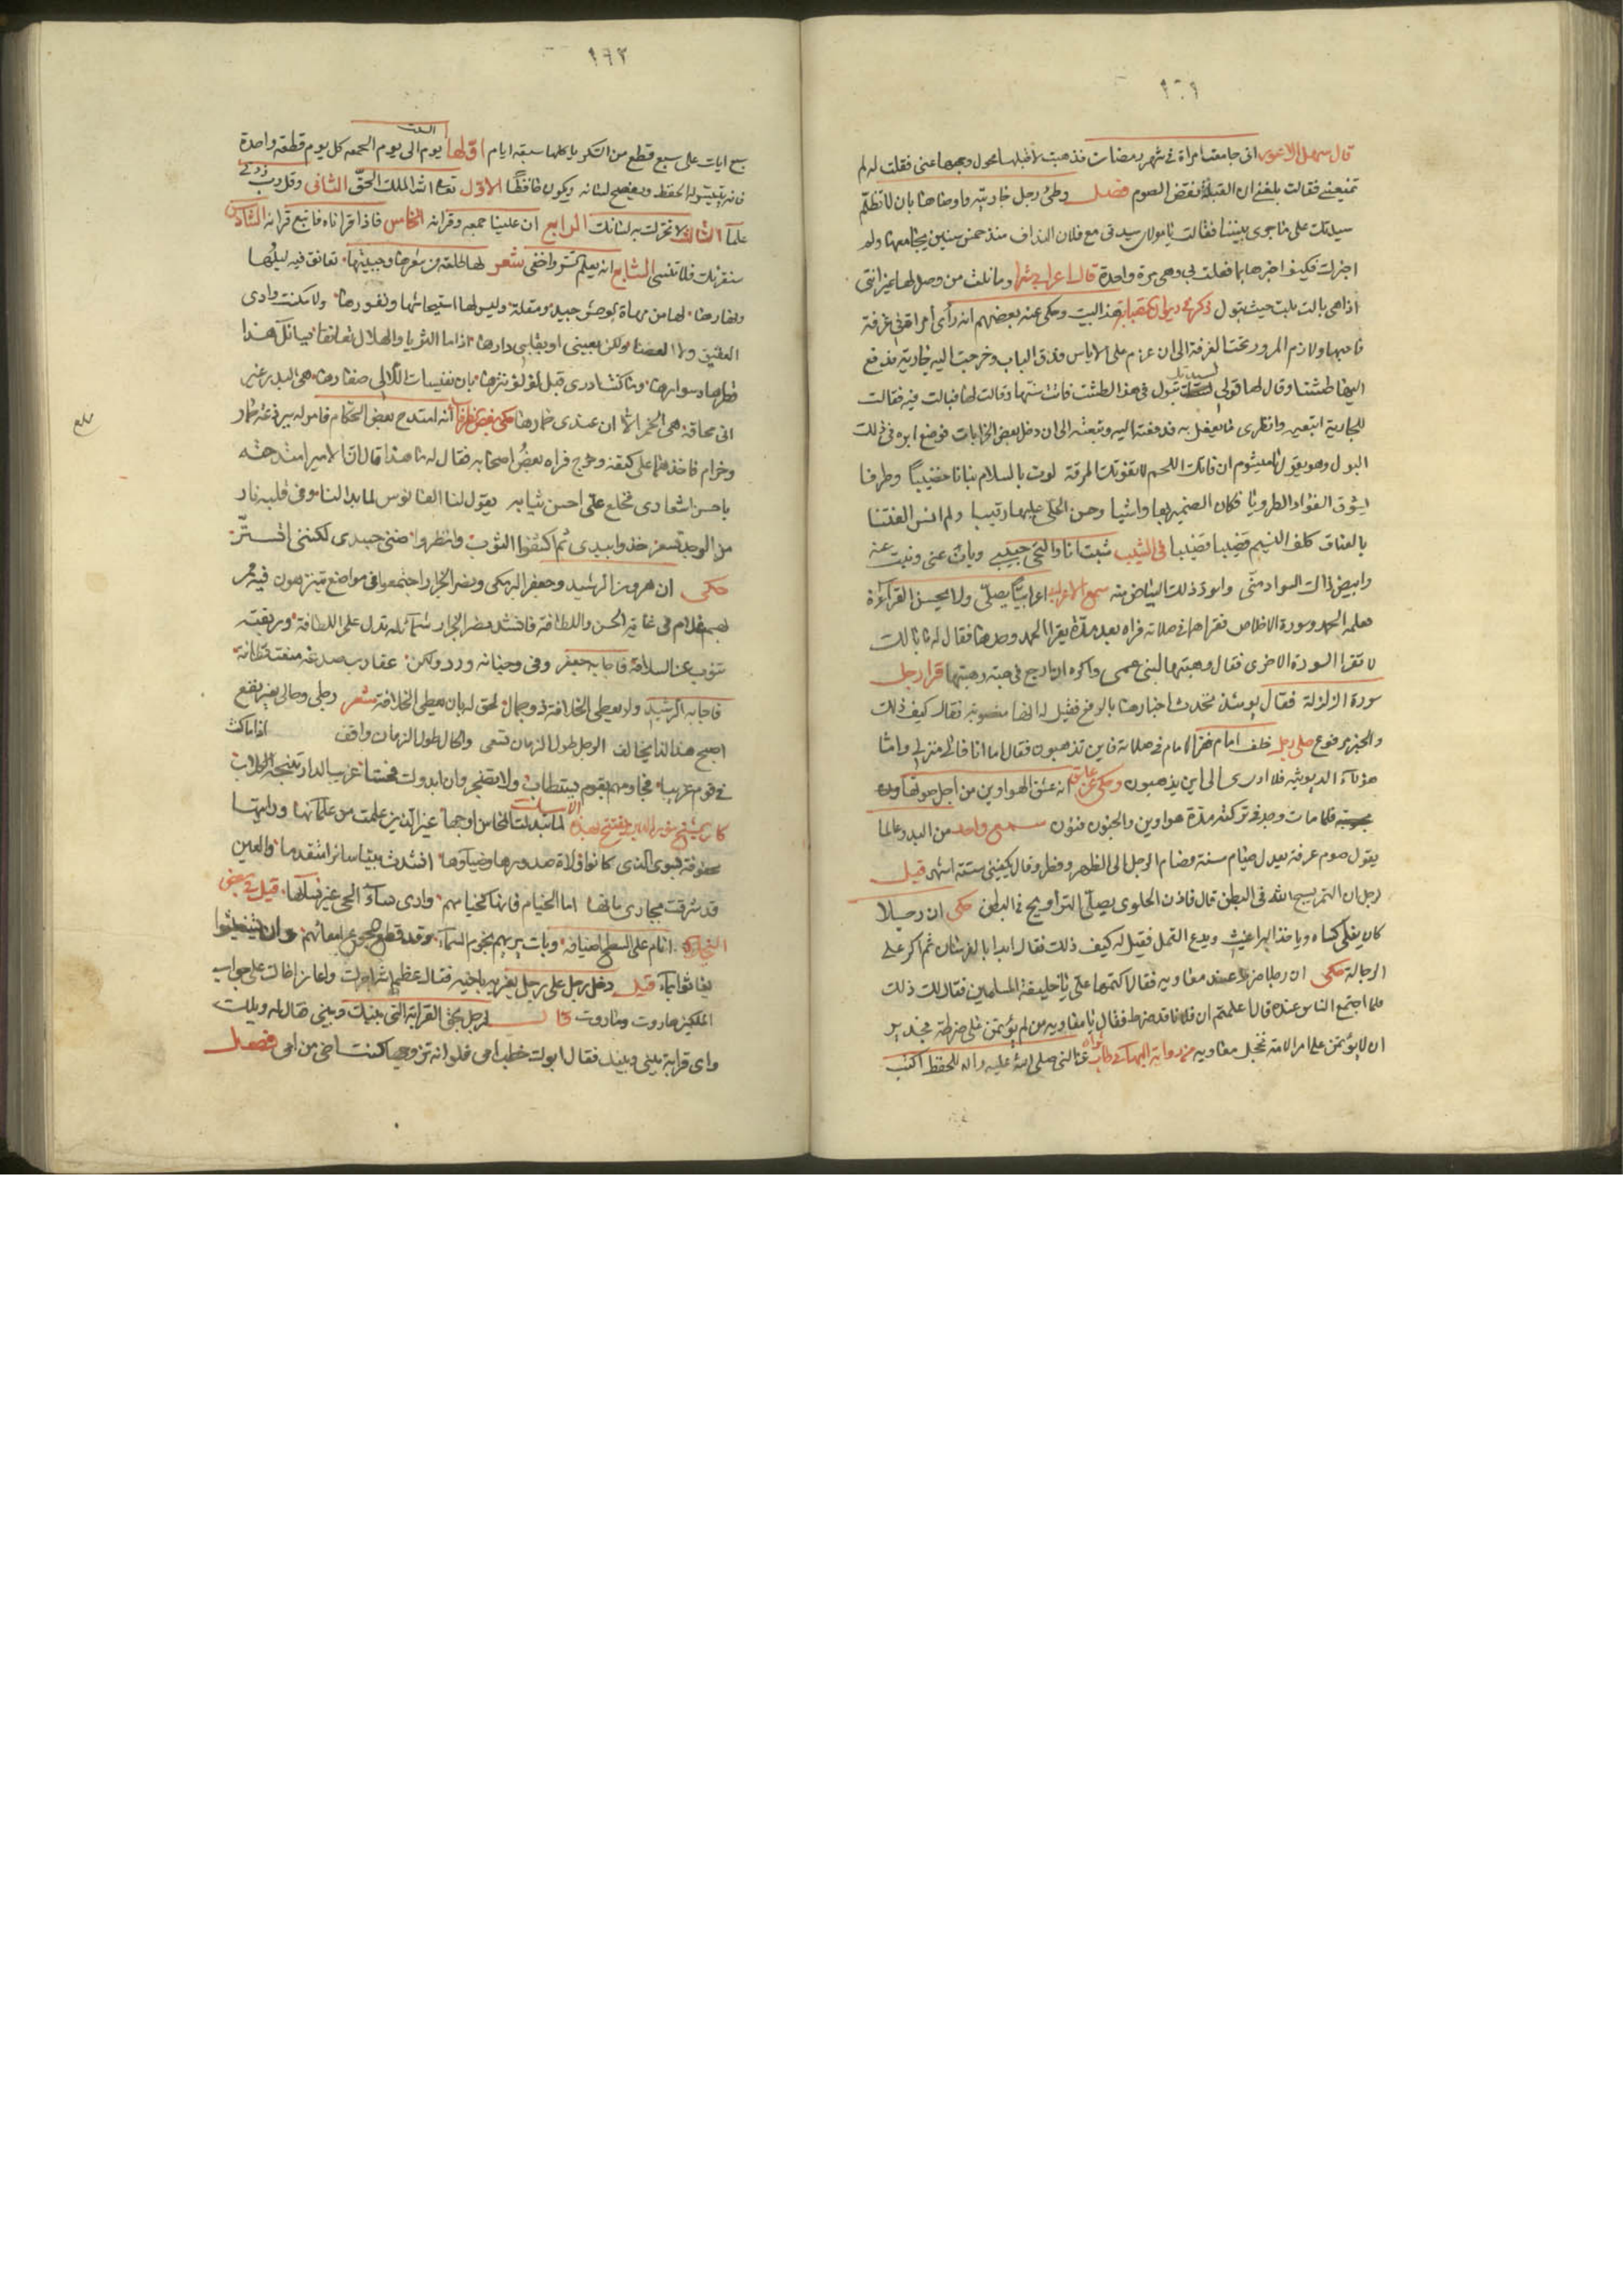 ١٦١
قال سهل الاعور اني جامعت امراة في شهر رمضان فذهبت لاقبلها فحول وجهها عني فقلت لها لم
تمنعيني فقالت بلغني ان القبلة تنقض الصوم فصل وطئ رجل جاريته واوصاها بان لا تظلم
سيدتك على ما جرى بيننا فقالت يا مولاى سيدتي مع فلان النداف منذ خمس سنين يجامعها ولم
اخبرك فكيف اخبرها بما فعلت بي وهي مرة واحدة قال اعرابي وما نلت من وصل لها غير انني
اذا هي بالت بلت حيث تبول ذكر في ديوان الصبابة هذا البيت وحكى عنه بعضهم انه رأى امراة في غرفة
فاحبها ولازم المرور تحت الغرفة الى ان عزم على الاياس فدق الباب وخرجت اليه جارية فدفع
اليها طشتا وقال لها قولي لسيدتك تبول في هذا الطشت فاتت ستها وقالت لها فبالت فيه فقالت
للجارية اتبعيه وانظري ما يفعل به فدفعته اليه وتبعته الى ان دخل بعض الخرابات فوضع ايره في ذلك
البول وهو يقول يا ميشوم ان فاتك اللحم لا تفوتك المرقة لوت بالسلام بنانا خضيبا وطرفا
يشوق الفؤاد الطروبا فكان الضمير بها واشيا وحسن الحلى عليها رقيبا ولم انس الفتنا
بالعناق كلف النسيم قضيبا قضيبا في الشيب شبت انا والتحى حبيبي وبان عني وبنت عنه
وابيض ذاك السواد مني واسود ذلك البياض منه سمع الاعرابي اعرابيا يصلي ولا يحسن القراءة
فعلمه الحمد وسورة الاخلاص فقراهما في صلاته فراه بعد مدة يقرا الحمد وحدها فقال له ما بالك
لا تقرا السورة الاخرى فقال وهبتها لبني عمي واكره ان ارجع في هبة وهبتها قرا رجل
سورة الزلزلة فقال يومئذ تحدث اخبارها بالرفع فقيل له انها منصوبة فقال كيف ذلك
والخبر مرفوع صلى رجل خلف امام فقرا الامام في صلاته فاين تذهبون فقال اما انا فالى منزلي واما
هؤلاء الديوثية فلا ادرى الى اين يذهبون وحكي عن عاشق انه عشق الهواوين من اجل صوتها
فلما مات وجد في تركته مدة هواوين والجنون فنون سمع واحد من البدو عالما
يقول صوم عرفة يعدل صيام سنة فصام الرجل الى الظهر وفطر وقال يكفيني ستة اشهر قيل
رجل ان التمر يسبح الله في البطن قال فاذن الحلوى يصلي التراويح في البطن حكى ان رجلا
كان يفلى كساه ويأخذ البراغيث ويدع القمل فقيل له كيف ذلك فقال ابدا بالفرسان ثم اكر على
الرجالة حكى ان رجلا ضرط عند معاويه فقال اكتمها علي يا خليفة المسلمين فقال لك ذلك
فلما اجتمع الناس عنده قال اعلمتم ان فلانا قد ضرط فقال يا معاويه من لم يؤتمن على ضرطة فجدير
ان لا يؤتمن على امر الامة فخجل معاويه عن النبي صلى الله عليه واله للحفظ اكتب
١٦٢
سبع ايات على سبع قطع من السكر يا كلها سبعة ايام اولها يوم السبت الى يوم الجمعه كل يوم قطعة واحدة
فانه يتيسر له الحفظ ويفصح لسانه ويكون حافظا الاول تعالى الله الملك الحق الثاني وقل رب زدني
علما الثالث لا تحرك به لسانك الرابع ان علينا جمعه وقرانه الخامس فاذا قراناه فاتبع قرانه السادس
سنقرئك فلا تنسى السابع انه يعلم السر واخفى شعر لها خلعة من شعرها وجبينها تعانق فيه ليلها
ونهارها لها من مهاة الوحش جيد ومقلة وليس لها استيحاشها ونفورها ولا سكنت وادى
العقيق ولا الغضا ولكن بعيني او بقلبي دارها اذا ما الثريا والهلال تعانقا هذا
قرطها وسوارها وما كنت ادرى قبل لؤلؤ ثغرها بان نفيسات اللآلى صغارها هي البدر غير
اني محاقه هي الخمر الا ان عندى خمارها حكى بعض الظرفا انه امتدح بعض الحكام فامر له ببرذعة حمار
وحزام فاخذهما على كتفه وخرج فراه بعض اصحابه فقال له ما هذا قال ان الامير امتدحته
باحسن اشعارى فخلع علي احسن ثيابه يقول لنا الفانوس لما بدا لنا وفي قلبه نار
من الوجد تسعر خذوا بيدى ثم اكشفوا الثوب وانظروا ضنى جسدى لكنني اتستر
حكى ان هرون الرشيد وجعفر البرمكي ونصر الخراز اجتمعوا في مواضع يتنزهون فيه مر
بهم غلام في غاية الحسن واللطافة فانشد نصر الخراز شمائله تدل على اللطافة وريقته
تنوب عن السلافة فاجابه جعفر وفي وجناته ورد ولكن عقارب صدغه منعت قطافه
فاجابه الرشيد ولو يعطى الخلافة ذو جمال لحق له بان يعطى الخلافة شعر رجلي وحالي بغير نفع
اصبح هذا لذا يخالف الرجل طول الزمان تسعى والحال طول الزمان واقف اذا ما كنت
في قوم غريبا فجاورهم بقوم يستطاب ولا تضجر وان ابدوك فحشا غريب الدار تنبحه الكلاب
لما تبدلت المجالس اوجها غير الذين علمت من علمائها ورايتها
محفوفة بسوى الذى كانوا ولاة صدورها وضيائها انشدت بيتا سائرا متقدما والعين
قد شرقت بجارى مائها اما الخيام فانها كخيامهم وارى نساء الحي غير نسائها قيل في بعض
البخلاء اقام على السطح اضيافه وبات يريهم نجوم السماء وقد قطع الجوع امعائهم وان يستغيثوا
يغاثوا بماء قيل دخل رجل على رجل يعزيه باخيه فقال عظم الله اجرك واعان اخاك على جواب
الملكين هاروت وماروت قال لرجل بحق القرابة التي بينك وبيني فقال له ويلك
واى قرابة بيني وبينك فقال ابوك خطب امي فلو انه تزوجها كنت اخي من امي فصل
بلغ